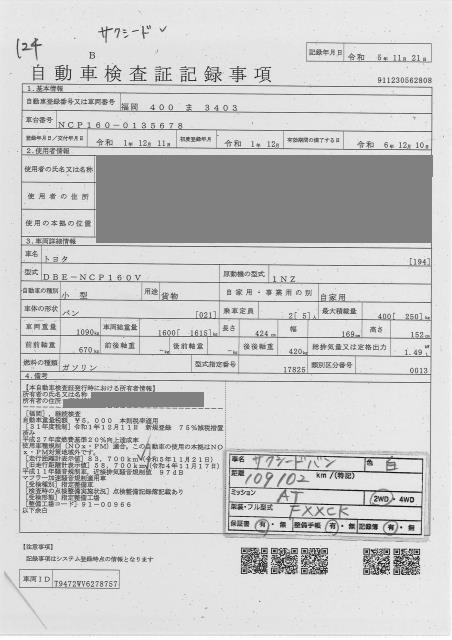 124
サクシード
B
記録年月日 令和 5年11月21日
自動車検査証記録事項
911230562808
1.基本情報
自動車登録番号又は車両番号 福岡 400 ま 3403
車台番号 NCP160-0135678
登録年月日/交付年月日 令和 1年12月11日 初度登録年月 令和 1年12月 有効期間の満了する日 令和 6年12月10日
2.使用者情報
使用者の氏名又は名称
使用者の住所
使用の本拠の位置
3.車両詳細情報
車名 トヨタ [194]
型式 DBE-NCP160V 原動機の型式 1NZ
自動車の種別 小型 用途 貨物 自家用・事業用の別 自家用
車体の形状 バン [021] 乗車定員 2[ 5]人 最大積載量 400[ 250]kg
車両重量 1090kg 車両総重量 1600[ 1615]kg 長さ 424cm 幅 169cm 高さ 152cm
前前軸重 670kg 前後軸重 -kg 後前軸重 -kg 後後軸重 420kg 総排気量又は定格出力 1.49
燃料の種類 ガソリン 型式指定番号 17825 類別区分番号 0013
4.備考
【本自動車検査証発行時における所有者情報】
所有者の氏名又は名称
所有者の住所
[福岡],継続検査
自動車重量税額 ¥5,000 本則税率適用
[31年度税制]令和1年12月11日 新規登録 75%減税措置
済み
平成27年度燃費基準20%向上達成車
使用車種規制(NOx・PM)適合,この自動車の使用の本拠はNO
x・PM対策地域外です。
[走行距離計表示値]83,700km(令和5年11月21日)
[旧走行距離計表示値]58,700km(令和4年11月17日)
平成11年騒音規制車,近接排気騒音規制値 97dB
マフラー加速騒音規制適用車
[受検種別]指定整備車
[検査時の点検整備実施状況]点検整備記録簿記載あり
[受検形態]指定整備工場
[整備工場コード]91-00966
以下余白
車名 サクシードバン 色 白
距離 109102 km/(特記)
ミッション AT 2WD・4WD
架装・フル型式 FXXCK
保証書 有・無 整備手帳 有・無 記録簿 有・無
【注意事項】
記録事項はシステム登録時点の情報となります
車両ID T9472WV6278757